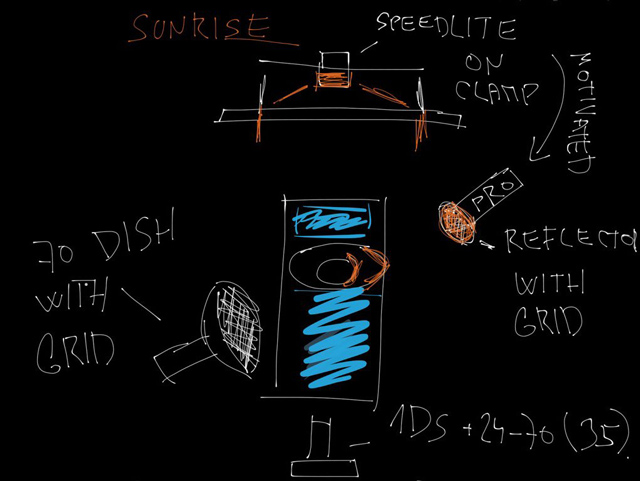 SUNRISE
SPEEDLITE
ON
CLAMP
MOTIVATED
PRO
REFLECTO
WITH
GRID
70 DISH
WITH
GRID
1DS + 24-70 (35)